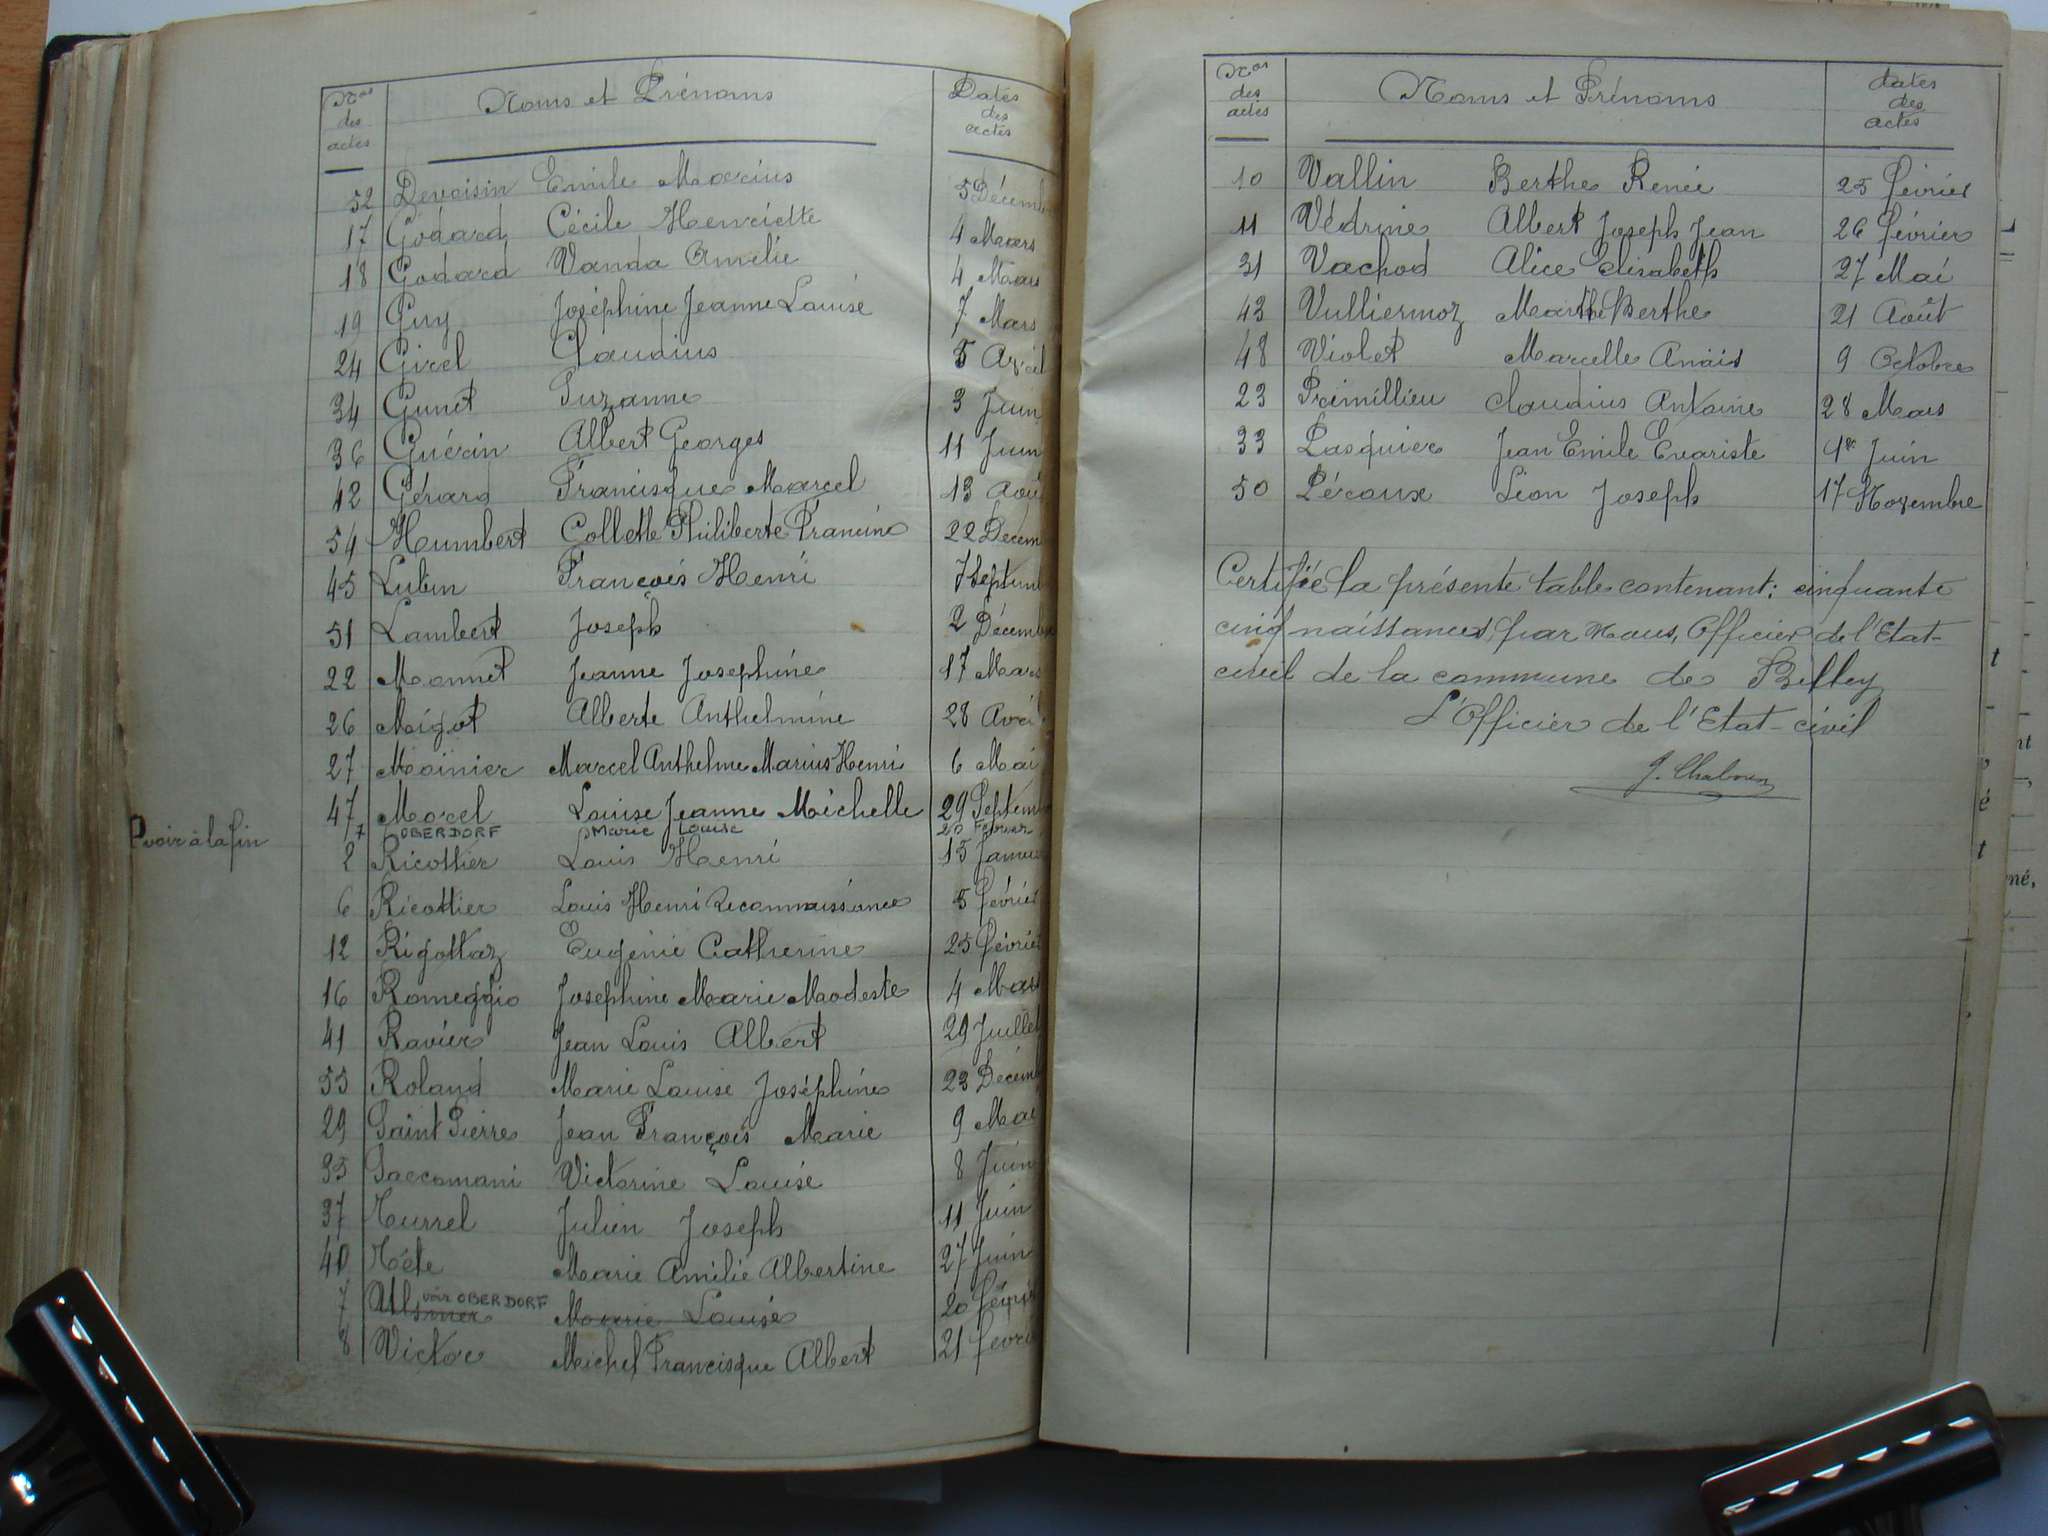 Nos des actes Noms et Prénoms Dates des actes
52 Devoisin Emile Marius 5 Décemb
17 Godard Cécile Henriette 4 Mars
18 Godard Vanda Amélie 4 Mars
19 Guy Joséphine Jeanne Louise 7 Mars
24 Girel Claudius 5 Avril
34 Gunet Suzanne 3 Juin
36 Guérin Albert Georges 11 Juin
42 Gérard Francisque Marcel 13 Août
54 Humbert Collette Philiberte Francine 22 Décem
45 Lubin François Henri 7 Septem
51 Lambert Joseph 2 Décemb
22 Monnet Jeanne Josephine 17 Mars
26 Migot Alberte Anthelmine 28 Avril
27 Moinier Marcel Anthelme Marius Henri 6 Mai
47 Morel Louise Jeanne Michelle 29 Septem
7 OBERDORF Marie Louise 20 Février
P voir à la fin
2 Ricottier Louis Henri 15 Janvier
6 Ricottier Louis Henri Reconnaissance 5 février
12 Rigottaz Eugénie Catherine 25 février
16 Romeggio Josephine Marie Modeste 4 Mars
41 Ravier Jean Louis Albert 29 Juillet
55 Roland Marie Louise Joséphine 23 Décemb
29 Saint Pierre Jean François Marie 9 Mai
35 Saccomani Victorine Louise 8 Juin
37 Turrel Julien Joseph 11 Juin
40 Tête Marie Amélie Albertine 27 Juin
7 voir OBERDORF Marie Louise 20 février
8 Victor Michel Francisque Albert 21 fevrie
Nos des actes Noms et Prénoms dates des actes
10 Vallin Berthe Renée 25 février
11 Védrine Albert Joseph Jean 26 février
31 Vachod Alice Elisabeth 27 Mai
43 Vulliermoz Marthe Berthe 21 Août
48 Violet Marcelle Anaïs 9 Octobre
23 Primillieu Claudius Antoine 28 Mars
33 Pasquier Jean Emile Evariste 1er Juin
50 Péroux Léon Joseph 17 Novembre
Certifiée la présente table contenant: cinquante
cinq naissances, par Nous, Officier de l'Etat-
civil de la commune de Belley
L'Officier de l'Etat-civil